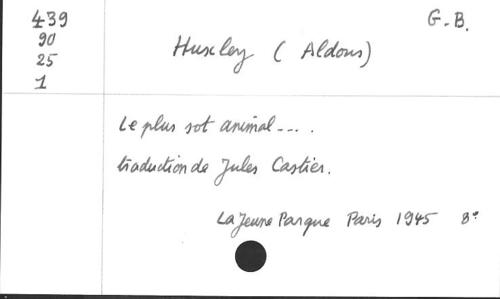 439
90
25
1
G.B.
Huxley (Aldous)
Le plus sot animal....
traduction de Jules Castier.
La Jeune Parque Paris 1945 8°